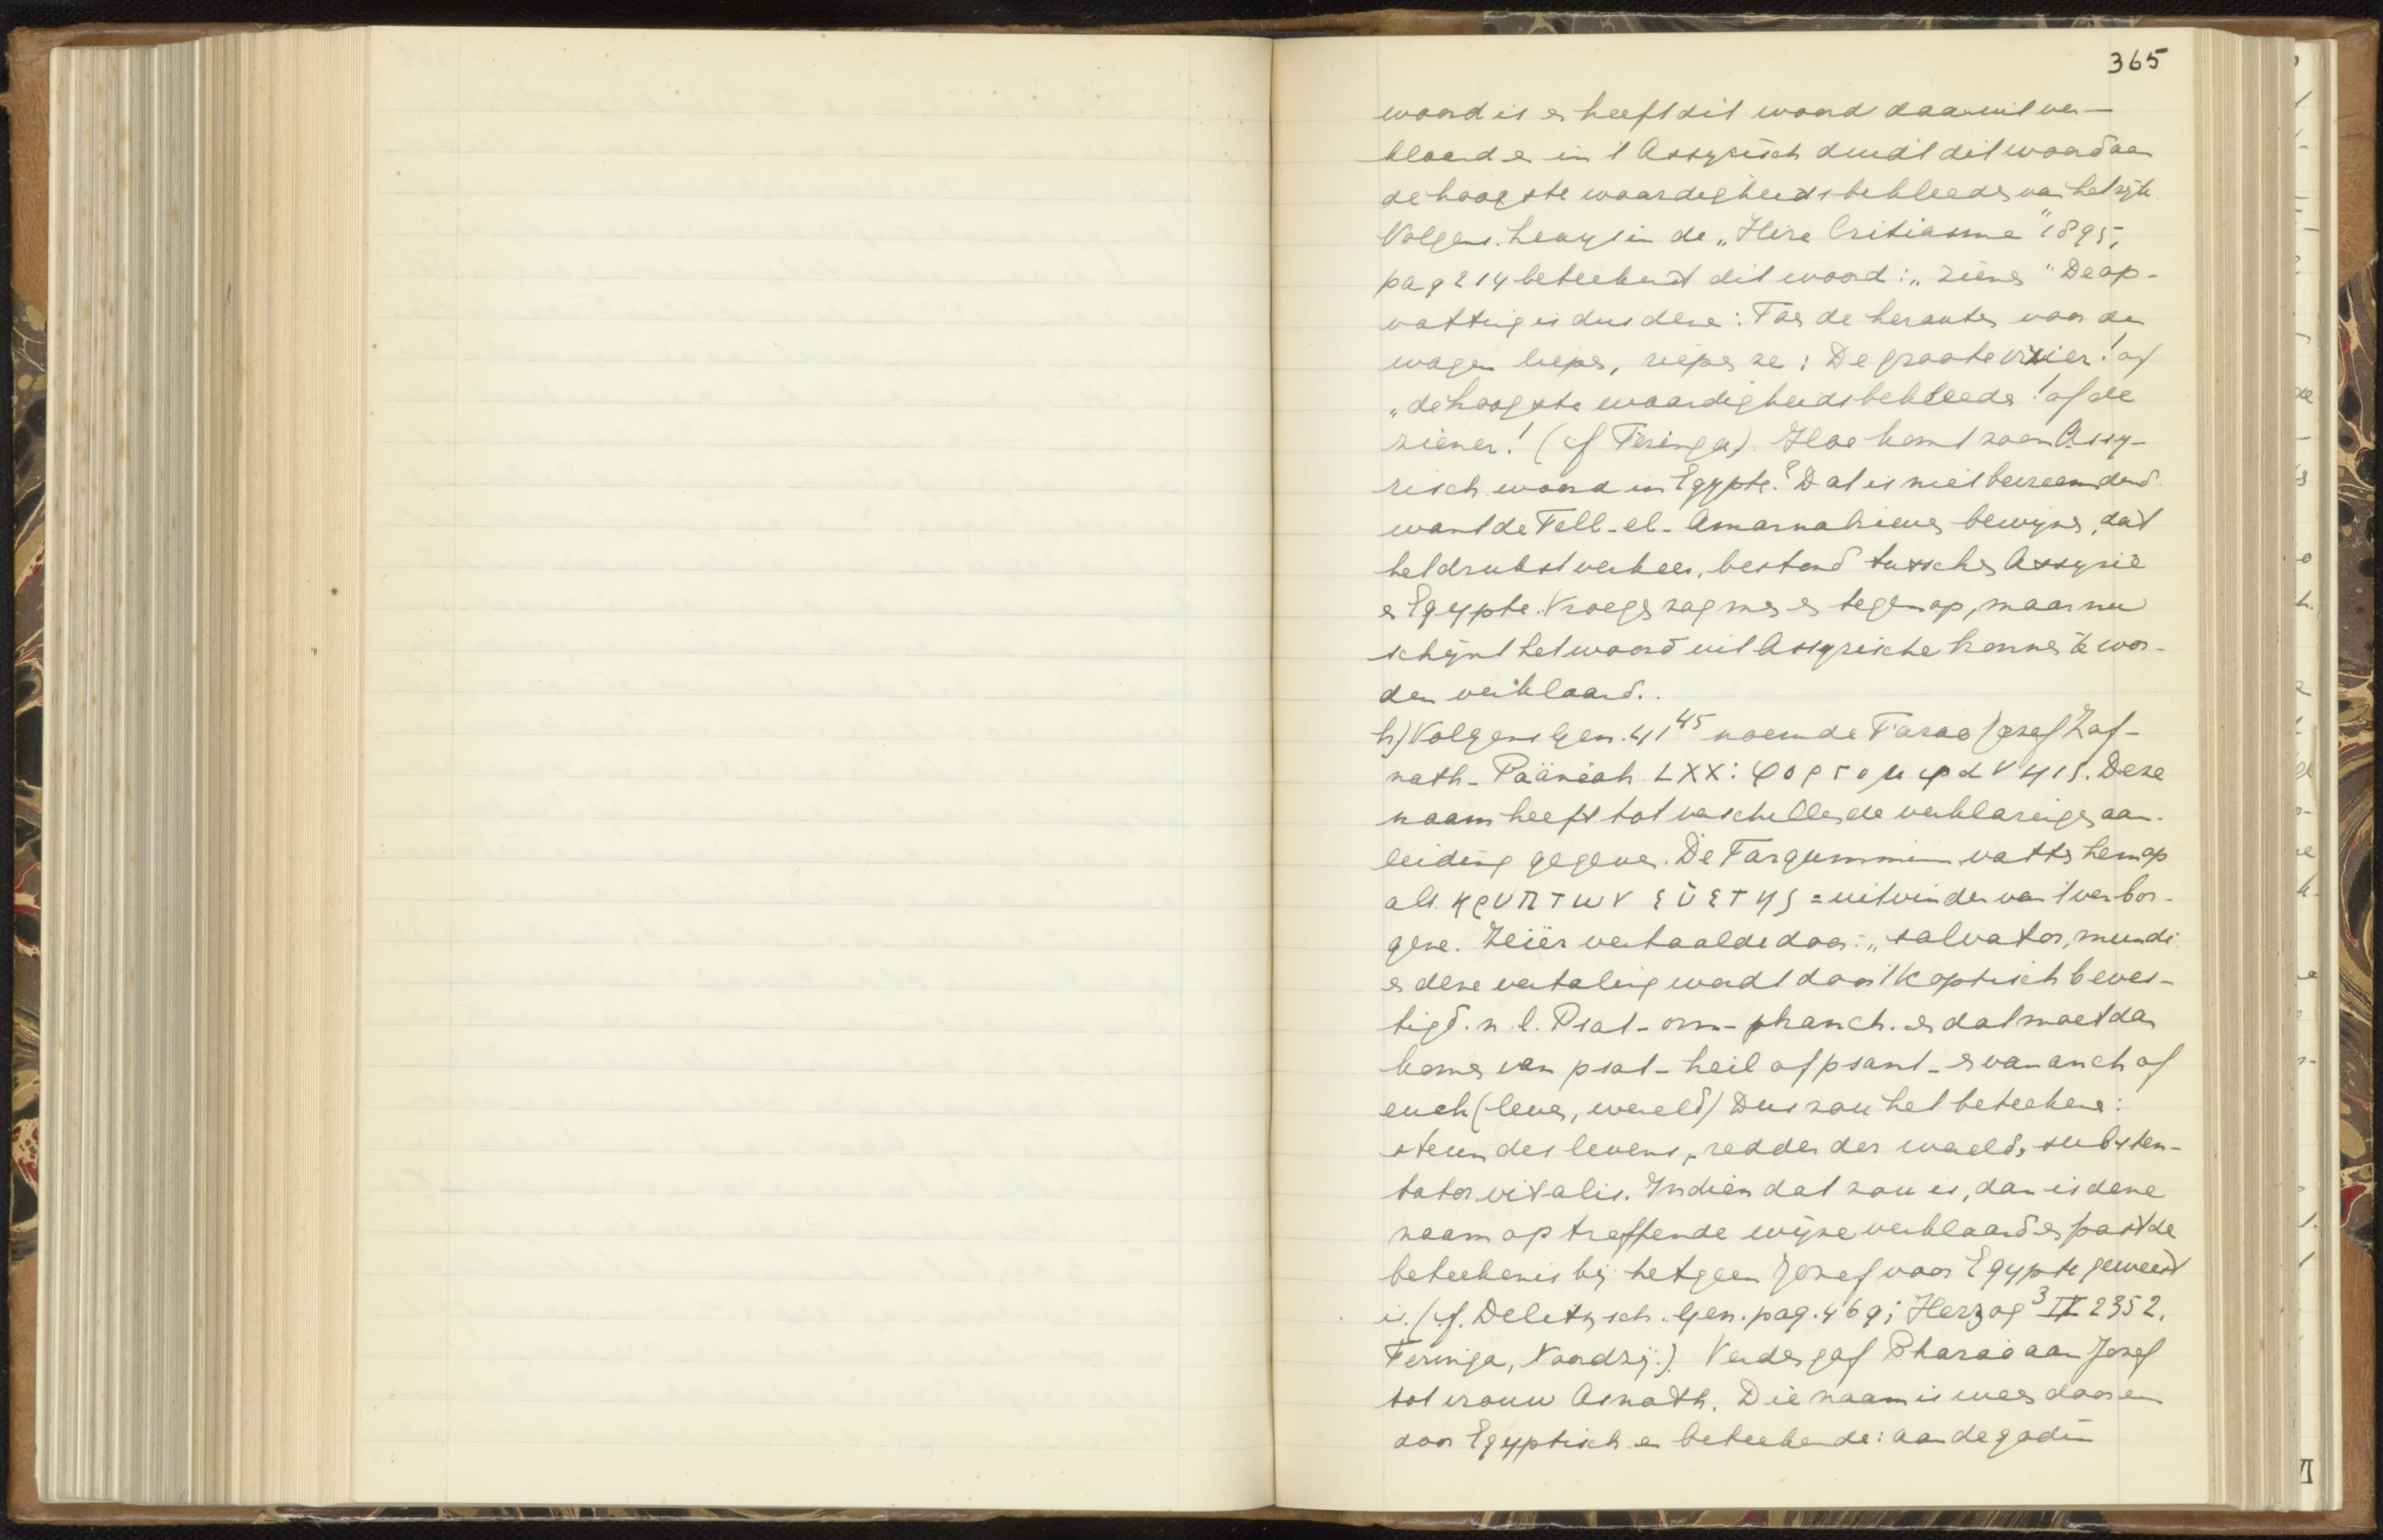 365
woord is en heeft dit woord daaruit ver-
klaard en in 't Assyrisch duidt dit woord aan
de hoogste waardigheidsbekleeder van het rijk.
Volgens in de „Hire Criticisme" 1895,
pag 214 beteekent dit woord: „ziener" De op-
vatting is dus deze: Toen de herauten voor den
wagen liepen, riepen ze: De groote vizier! of
„de hoogste waardigheidsbekleeder! of de
ziener! (cf Teringa). Hoe komt zoo'n Assy-
risch woord in Egypte? Dat is niet bevreemdend
want de Tell-el-Amarnabrieven bewijzen, dat
het drukst verkeer, bestond tusschen Assyrië
en Egypte. Vroeger zag men er tegenop, maar nu
schijnt het woord uit Assyrische bronnen te wor-
den verklaard..
h) Volgens Gen. 41 45 noemde Farao Jozef Zaf-
nath-Paäneah LXX: ψορτομφανης. Deze
naam heeft tot verschillende verklaringen aan-
leiding gegeven. De Targummim vatten hem op
als κρυπτων εὑετης = uitvinder van 't verbor-
gene. vertaalde door: „salvator, mundi
en deze vertaling wordt door 't Koptisch beves-
tigd. n.l. Psat-om-phanch. en dat moet dan
komen van psat-heil of psant- en van anch of
euch (leven, wereld) Dus zou het beteekenen:
steun des levens, redder der wereld, substen-
tator vitalis. Indien dat zou is, dan is deze
naam op treffende wijze verklaard en past de
beteekenis bij hetgeen Jozef voor Egypte geweest
is. (cf. Delitzsch. Gen. pag. 469; Herzog 3 IX 2352.
Teringa, Noordzij.). Verder gaf Pharao aan Jozef
tot vrouw Asnath. Die naam is weer door en
door Egyptisch en beteekende: aan de godin